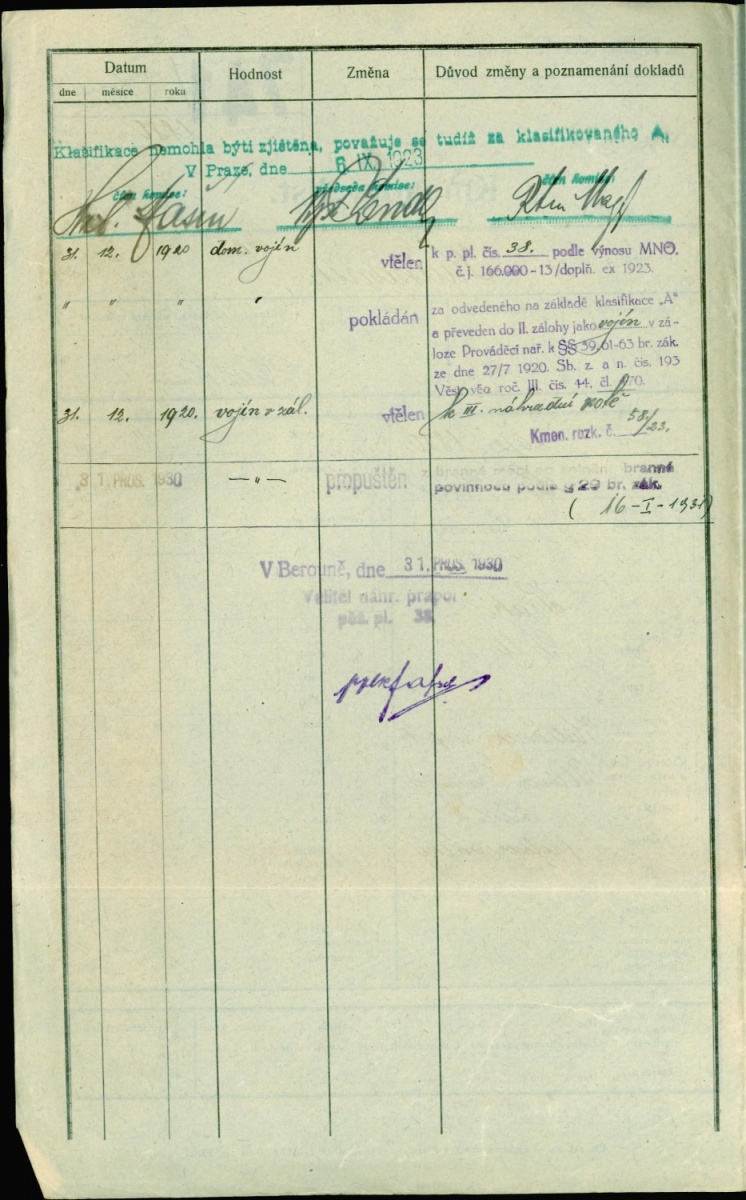 Datum Hodnost Změna Důvod změny a poznamenání dokladů
dne měsíce roku
Klasifikace nemohla býti zjištěna, považuje se tudíž za klasifikovaného A.
V Praze, dne 6. IX. 1923
člen komise: předseda komise: člen komise:
31. 12. 1920 dom. vojín vtělen k p. pl. čís. 38. podle výnosu MNO.
č. j. 166.000-13/doplň. ex 1923.
" " " " pokládán za odvedeného na základě klasifikace „A"
a převeden do II. zálohy jako vojín v zá-
loze Prováděcí nař. k §§ 59, 61-63 br. zák.
ze dne 27/7 1920. Sb. z. a n. čís. 193
Věst. roč. III. čís. 44, čl. 770.
31. 12. 1920. vojín v zál. vtělen k III. náhradní rotě
Kmen. rozk. č. 58/23.
31. PROS. 1930 —"— propuštěn z branné moci po splnění branné
povinnosti podle § 29 br. zák.
(16-I-1931)
V Berouně, dne 31. PROS. 1930
Velitel náhr. prapor
pěš. pl. 38